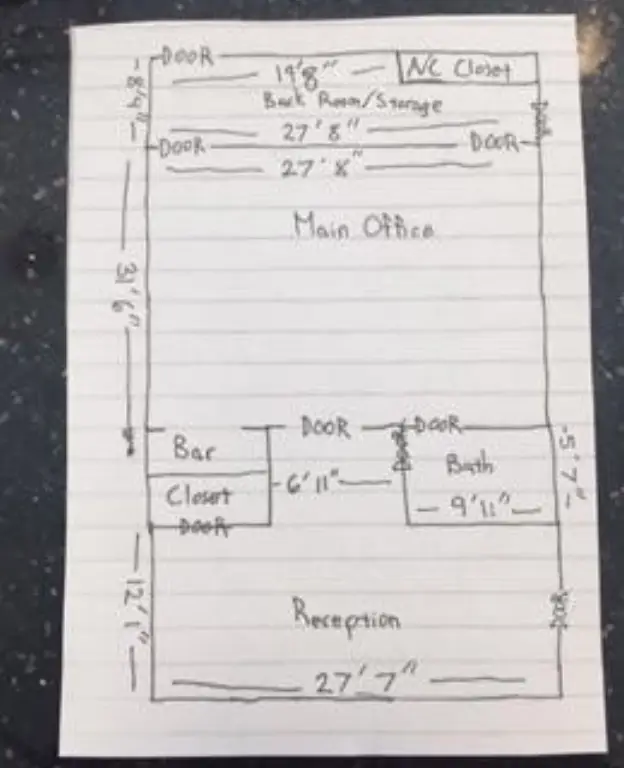 DOOR
19'8"
A/C Closet
8'9"
Back Room/Storage
DOOR
27'8"
DOOR
DOOR
27'8"
Main Office
31'6"
DOOR
DOOR
Bar
DOOR
Bath
5'7"
Closet
6'11"
9'11"
DOOR
12'1"
Reception
DOOR
27'7"